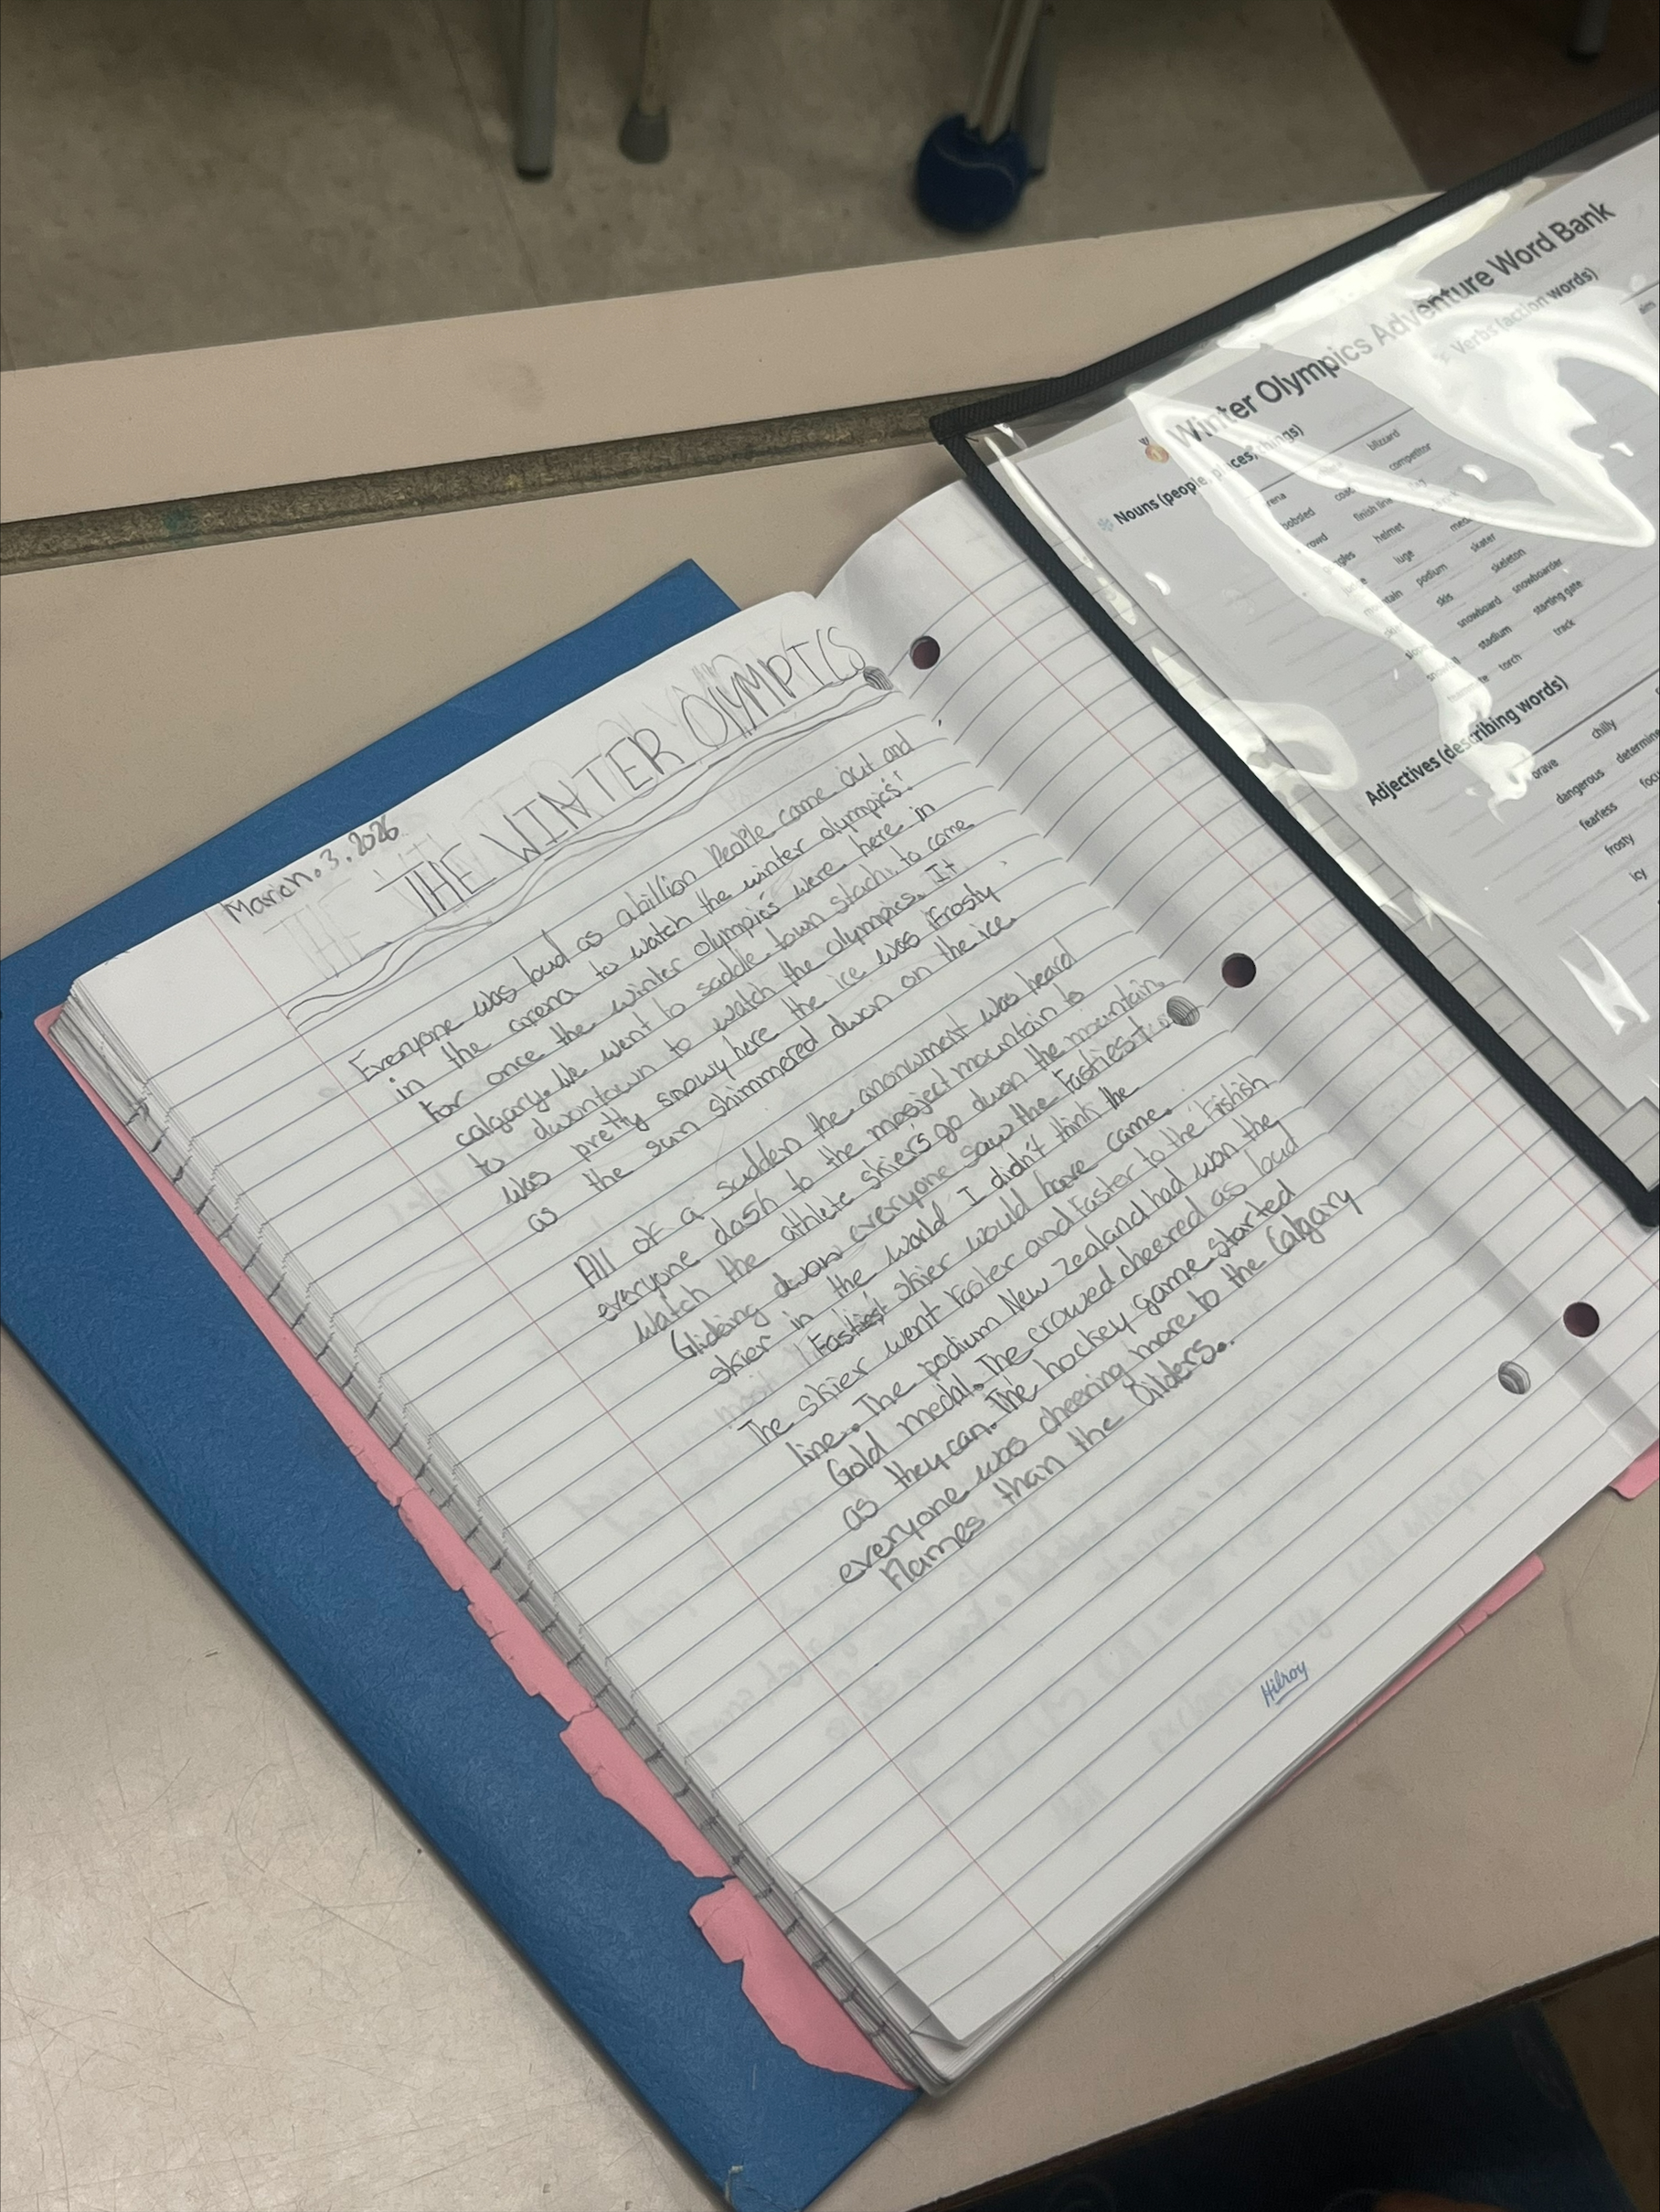 March. 3. 2026
THE WINTER OLYMPICS
Everyone was loud as a billion People came out and
in the arena to watch the winter olympics!
For once the winter olympics were here in
calgary. We went to saddle town stach. to come
to dwontown to watch the olympics. It
was pretty snowy here the ice was Frosty
as the sun shimmered dwon on the ice.
All of a sudden the anonwment was heard
everyone dash to the mosject mountain to
watch the athlete skiers go dwon the mountain.
Gliding dwon everyone saw the Fastiest
skier in the world I didn't think the
Fastiest skier would have came.
The skier went Faster and Faster to the Fishish
line. The podium New Zealand had won the
Gold medal. The crowed cheered as loud
as they can. The hockey game started
everyone was cheering more to the Calgary
Flames than the Oilders.
Hilroy
Winter Olympics Adventure Word Bank
Nouns (people, places, things)
Verbs (action words)
blizzard
competitor
finish line
helmet
luge
skater
podium
skeleton
skis
snowboard
snowboarder
stadium
starting gate
torch
track
Adjectives (describing words)
brave
chilly
dangerous
fearless
frosty
icy